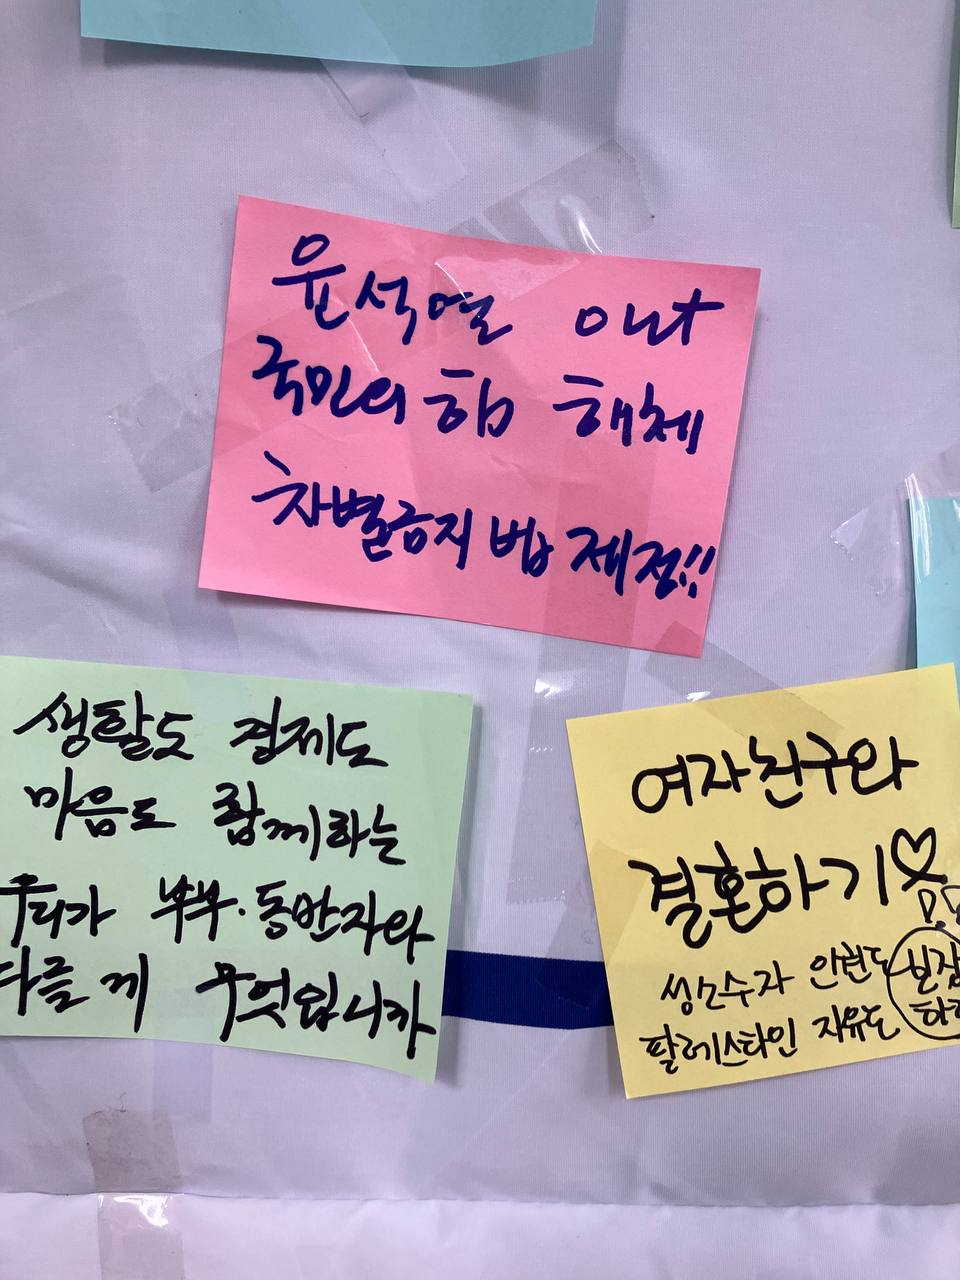 윤석열 out
국민의힘 해체
차별금지법 제정!!
생활도 경제도
마음도 함께하는
우리가 부부·동반자와
다를 게 무엇입니까
여자친구와
결혼하기♡
P.S
성소수자 인권도
팔레스타인 자유도
보장
하라